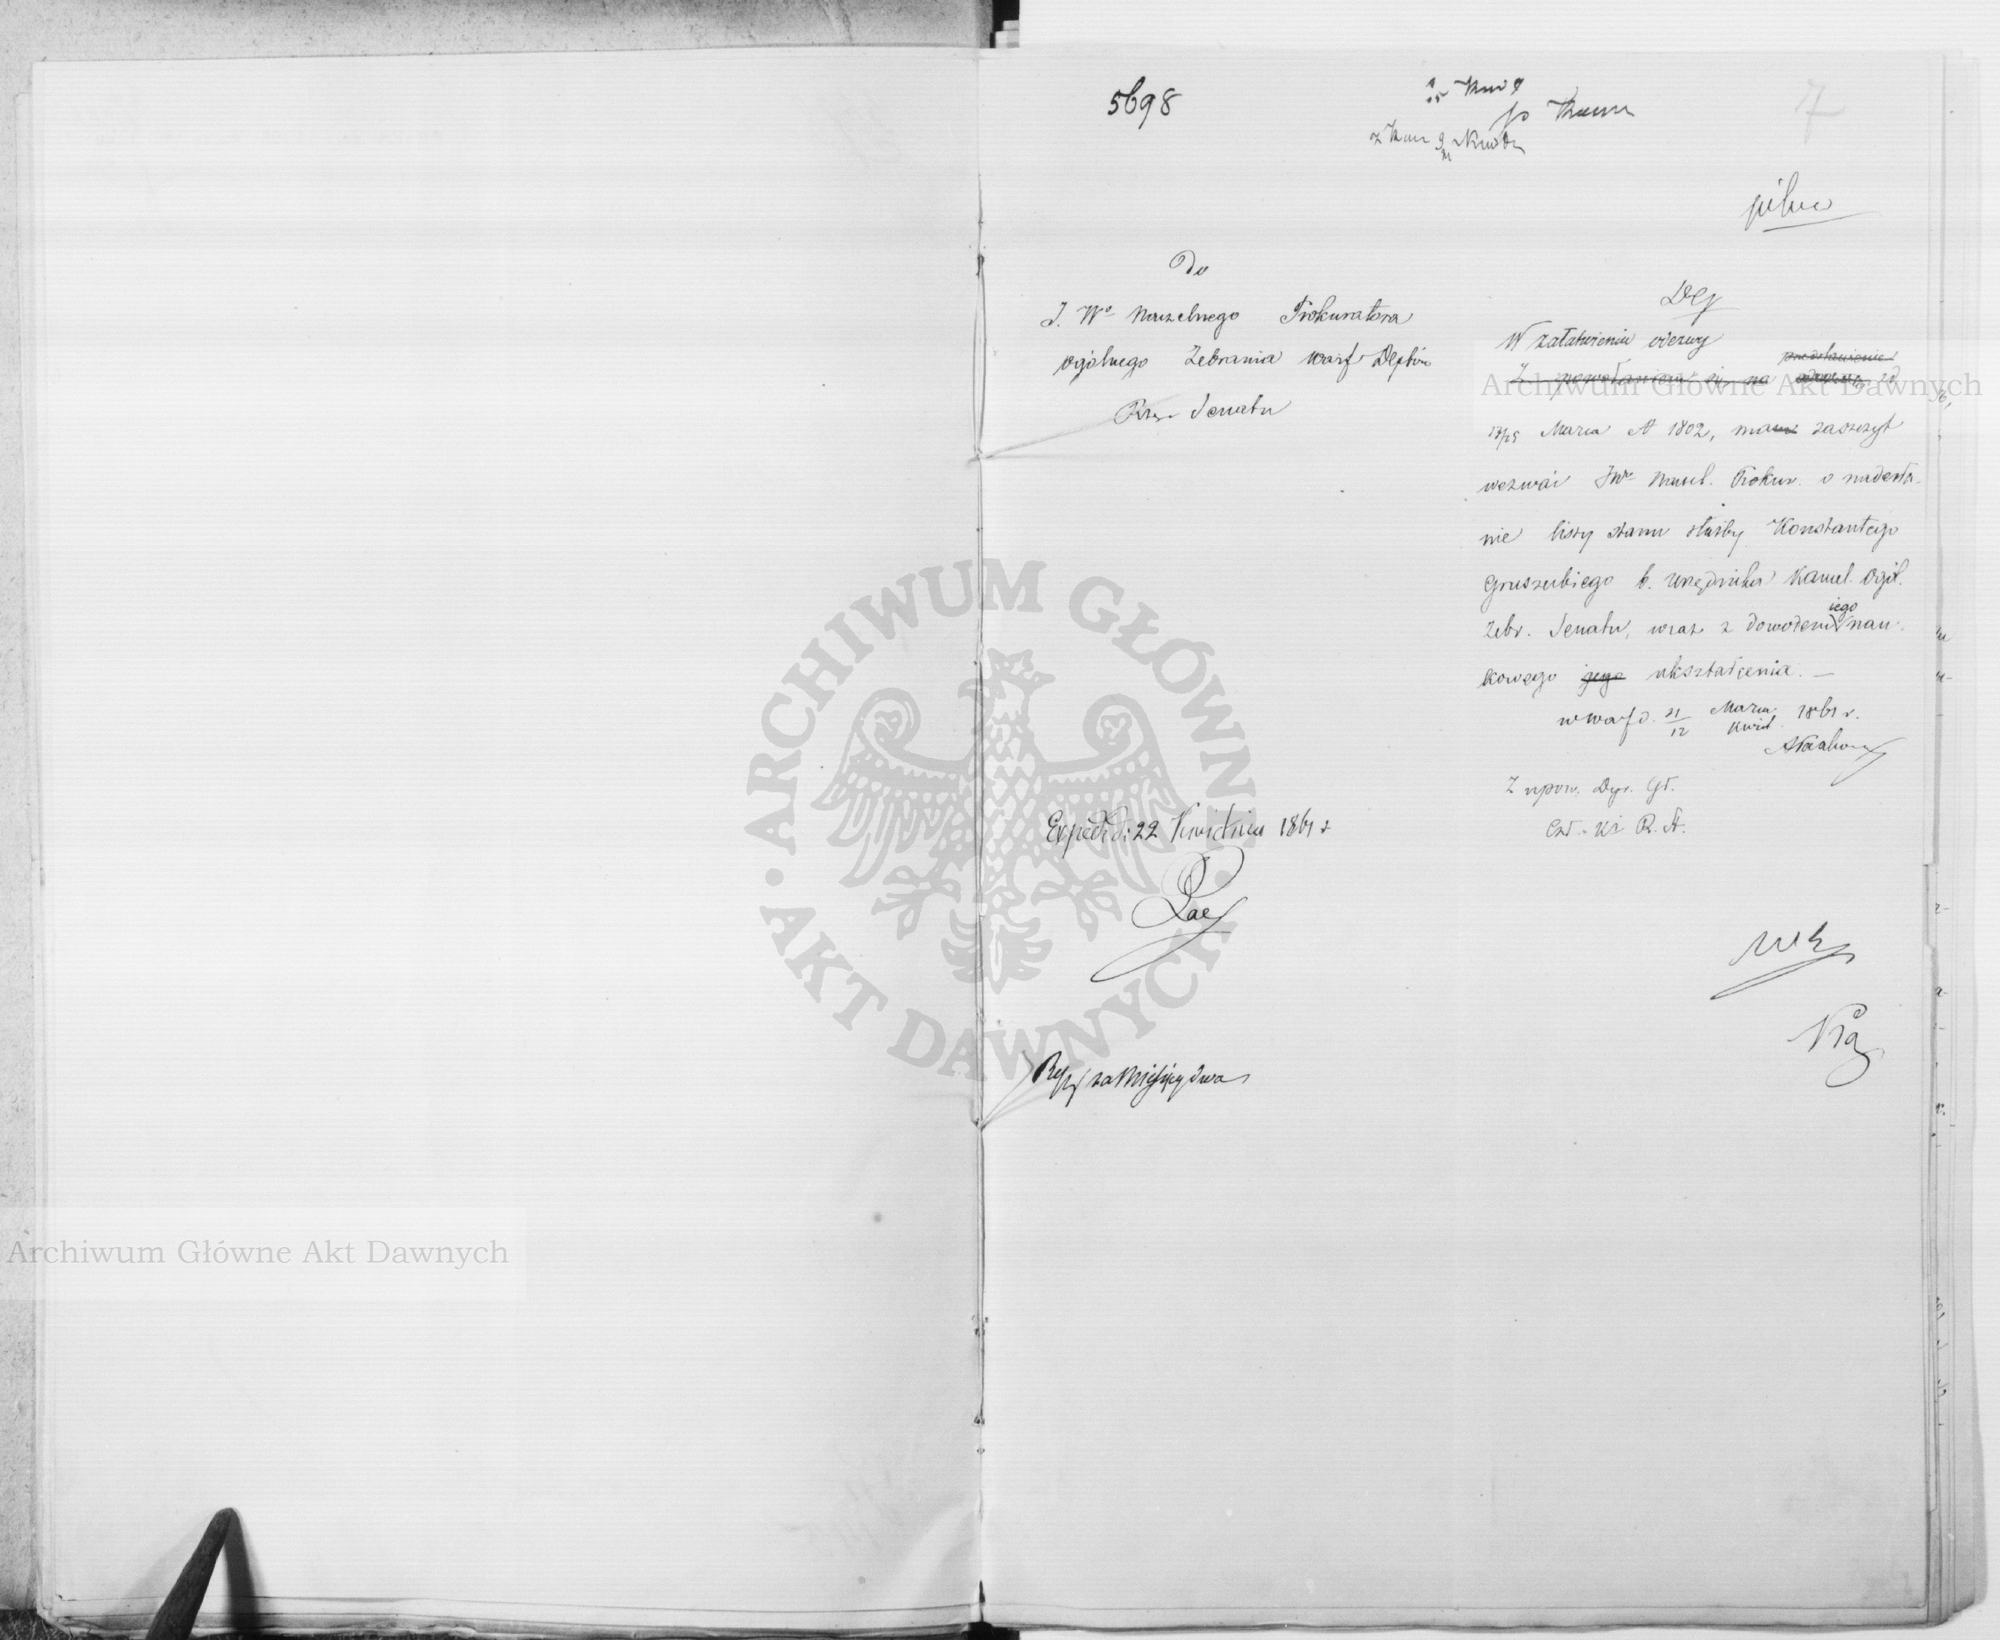 5698
7
pilno
Do
J. Wo Naczelnego Prokuratora
ogólnego Zebrania Warsz Deptów
Rządz. Senatu
Dey
W załatwieniu odezwy
przedstawienie
Z powołaniem się na odezwę z d
13/25 Marca N 1802, mam zaszczyt
wezwać JWo Naczel. Prokur. o nadesła-
nie listy stanu służby Konstantego
Gruszeckiego b. urzędnika Kancel. Ogól.
Zebr. Senatu, wraz z dowodem jego nau-
kowego jego ukształcenia. —
w Warsz d. 31/12 Marca/Kwiet. 1861 r.
Z upow. Dyr. Gł.
Czł. R. A.
Exped d: 22 Kwietnia 1861 r
Rep. za Miesięcy dwa
ARCHIWUM GŁÓWNE
AKT DAWNYCH
Archiwum Główne Akt Dawnych
Archiwum Główne Akt Dawnych